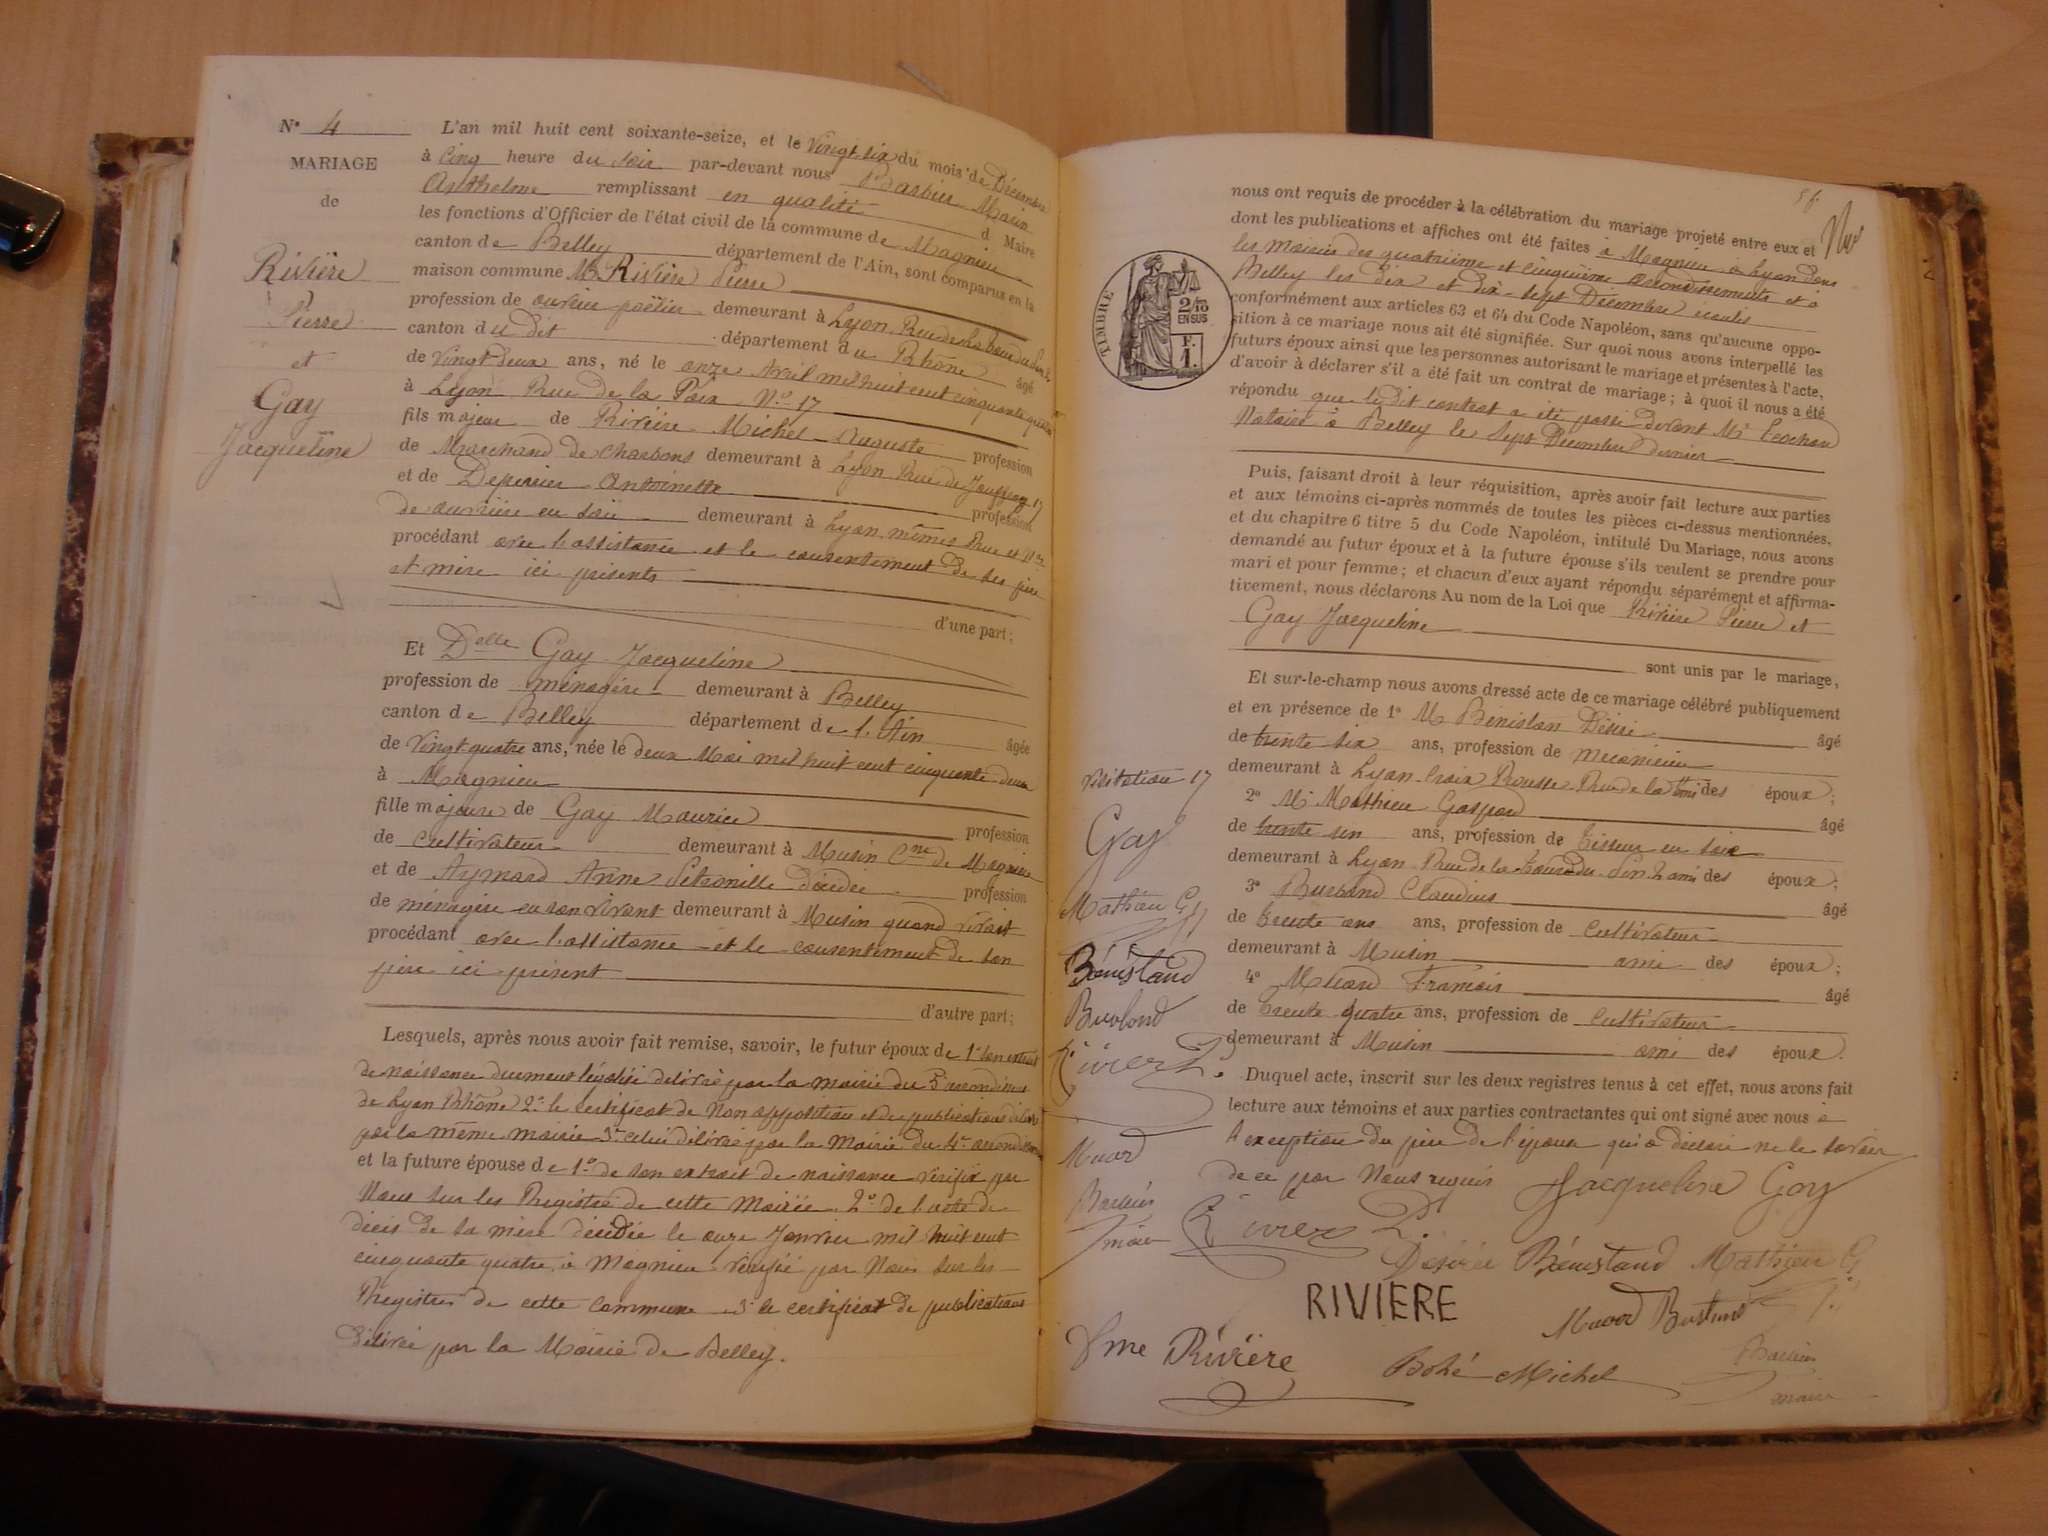 N° 4
MARIAGE
de
Rivière
Pierre
et
Gay
Jacqueline
L'an mil huit cent soixante-seize, et le Vingt six du mois de Décembre
à Cinq heure du soir par-devant nous Barbier Marin
Anthelme remplissant en qualité d Maire
les fonctions d'Officier de l'état civil de la commune de Magnieu
canton de Belley département de l'Ain, sont comparus en la
maison commune M Rivière Pierre
profession de ouvrier poëlier demeurant à Lyon Rue de
canton du dit département du Rhône âgé
de Vingt deux ans, né le onze Avril mil huit cent cinquante quatre
à Lyon Rue de la Paix N° 17
fils majeur de Rivière Michel-Auguste profession
de Marchand de charbons demeurant à Lyon Rue de Jouffroy 17
et de Deperier Antoinette profession
de ouvrière en soie demeurant à Lyon mêmes Rue et N°
procédant avec l'assistance et le consentement de ses père
et mère ici présents
d'une part;
Et Delle Gay Jacqueline
profession de ménagère demeurant à Belley
canton de Belley département de l'Ain âgée
de Vingt quatre ans, née le deux Mai mil huit cent cinquante deux
à Magnieu
fille majeure de Gay Maurice profession
de Cultivateur demeurant à Musin Cne de Magnieu
et de Aymard Anne Pétronille décédée profession
de ménagère en son vivant demeurant à Musin quand vivait
procédant avec l'assistance et le consentement de son
père ici présent
d'autre part;
Lesquels, après nous avoir fait remise, savoir, le futur époux de 1° son extrait
de naissance duement légalisé délivré par la mairie du 5e arrondissmt
de Lyon Rhône 2° le certificat de Non opposition et de publications délivré
par la même mairie 3° celui délivré par la Mairie du 4e arrondissmt
et la future épouse de 1° de son extrait de naissance vérifié par
Nous sur les Registre de cette Mairie 2° de l'acte de
décès de sa mère décédée le onze Janvier mil huit cent
cinquante quatre à Magnieu vérifié par Nous sur les
Registres de cette Commune 3° le certificat de publications
délivré par la Mairie de Belley.
nous ont requis de procéder à la célébration du mariage projeté entre eux et
dont les publications et affiches ont été faites à Magnieu à Lyon dans
les mairies des quatrième et cinquième arrondissements et à
Belley les dix et dix-sept Décembre écoulés
conformément aux articles 63 et 64 du Code Napoléon, sans qu'aucune oppo-
sition à ce mariage nous ait été signifiée. Sur quoi nous avons interpellé les
futurs époux ainsi que les personnes autorisant le mariage et présentes à l'acte,
d'avoir à déclarer s'il a été fait un contrat de mariage; à quoi il nous a été
répondu que ledit contrat a été passé devant Me
Notaire à Belley le Sept Décembre dernier
TIMBRE
2/10
EN SUS
F.
1.
Puis, faisant droit à leur réquisition, après avoir fait lecture aux parties
et aux témoins ci-après nommés de toutes les pièces ci-dessus mentionnées,
et du chapitre 6 titre 5 du Code Napoléon, intitulé Du Mariage, nous avons
demandé au futur époux et à la future épouse s'ils veulent se prendre pour
mari et pour femme; et chacun d'eux ayant répondu séparément et affirma-
tivement, nous déclarons Au nom de la Loi que Rivière Pierre et
Gay Jacqueline
sont unis par le mariage,
Et sur-le-champ nous avons dressé acte de ce mariage célébré publiquement
et en présence de 1° M Bénistan Désiré âgé
de trente six ans, profession de mécanicien
demeurant à Lyon Croix Rousse Rue de la ami des époux;
2° M Mathieu Gaspard âgé
de trente un ans, profession de Tisseur en soie
demeurant à Lyon Rue de la ami des époux;
3° Burland Claudius âgé
de trente ans ans, profession de Cultivateur
demeurant à Musin ami des époux;
4° Muard François âgé
de trente quatre ans, profession de Cultivateur
demeurant à Musin ami des époux.
Duquel acte, inscrit sur les deux registres tenus à cet effet, nous avons fait
lecture aux témoins et aux parties contractantes qui ont signé avec nous à
l'exception du père de l'époux qui a déclaré ne le savoir
de ce par Nous requis
Visitation 17
Gay
Mathieu G
Bénistand
Burland
Rivier P.
Muard
Barbier
maire
Jacqueline Gay
Rivier P.
Désirée Bénistand Mathieu G
RIVIERE
Muard Burland
Vme Rivière
Bohé Michel
Barbier
maire